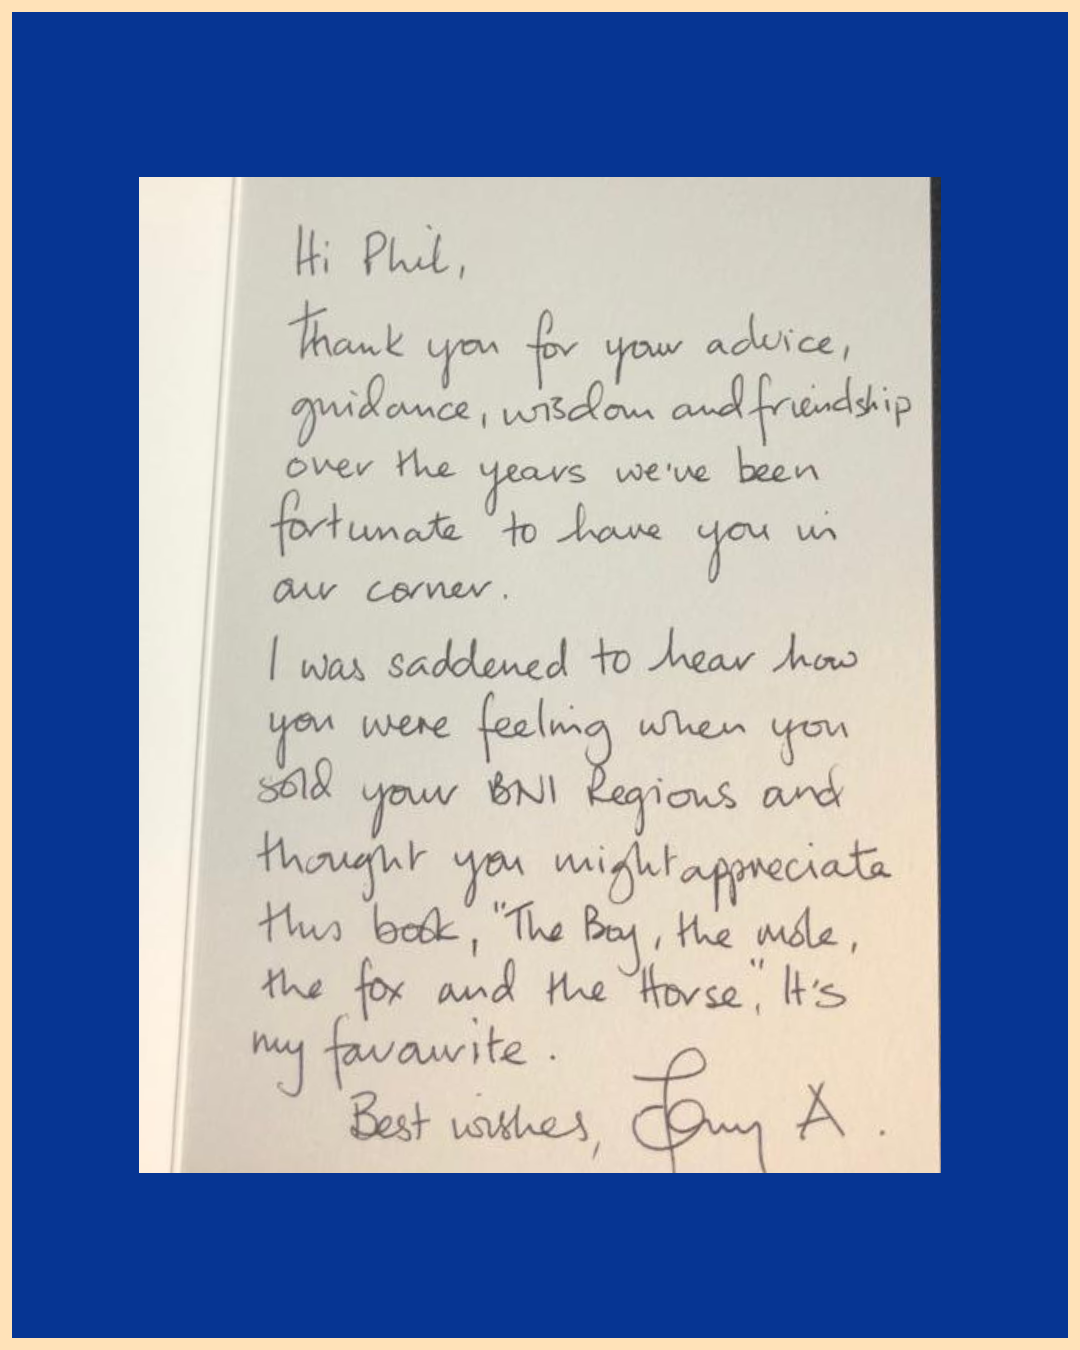 Hi Phil,
Thank you for your advice,
guidance, wisdom and friendship
over the years we've been
fortunate to have you in
our corner.
I was saddened to hear how
you were feeling when you
sold your BNI Regions and
thought you might appreciate
this book, "The Boy, the mole,
the fox and the Horse". It's
my favourite.
Best wishes, A.